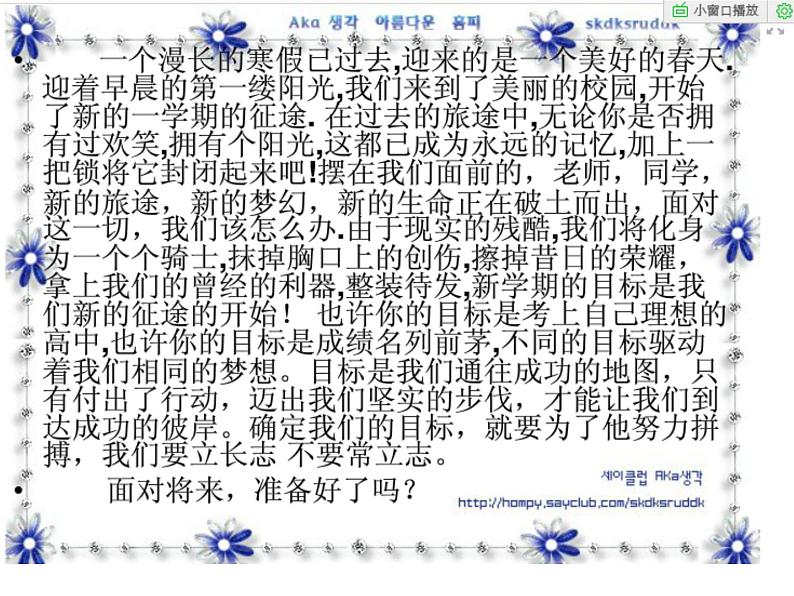 小窗口播放
Aka 생각 아름다운 홈피
skdksruddk
• 一个漫长的寒假已过去,迎来的是一个美好的春天.
迎着早晨的第一缕阳光,我们来到了美丽的校园,开始
了新的一学期的征途. 在过去的旅途中,无论你是否拥
有过欢笑,拥有个阳光,这都已成为永远的记忆,加上一
把锁将它封闭起来吧!摆在我们面前的，老师，同学，
新的旅途，新的梦幻，新的生命正在破土而出，面对
这一切，我们该怎么办.由于现实的残酷,我们将化身
为一个个骑士,抹掉胸口上的创伤,擦掉昔日的荣耀，
拿上我们的曾经的利器,整装待发,新学期的目标是我
们新的征途的开始！ 也许你的目标是考上自己理想的
高中,也许你的目标是成绩名列前茅,不同的目标驱动
着我们相同的梦想。目标是我们通往成功的地图，只
有付出了行动，迈出我们坚实的步伐，才能让我们到
达成功的彼岸。确定我们的目标，就要为了他努力拼
搏，我们要立长志 不要常立志。
• 面对将来，准备好了吗？
세이클럽 AKa생각
http://hompy.sayclub.com/skdksruddk